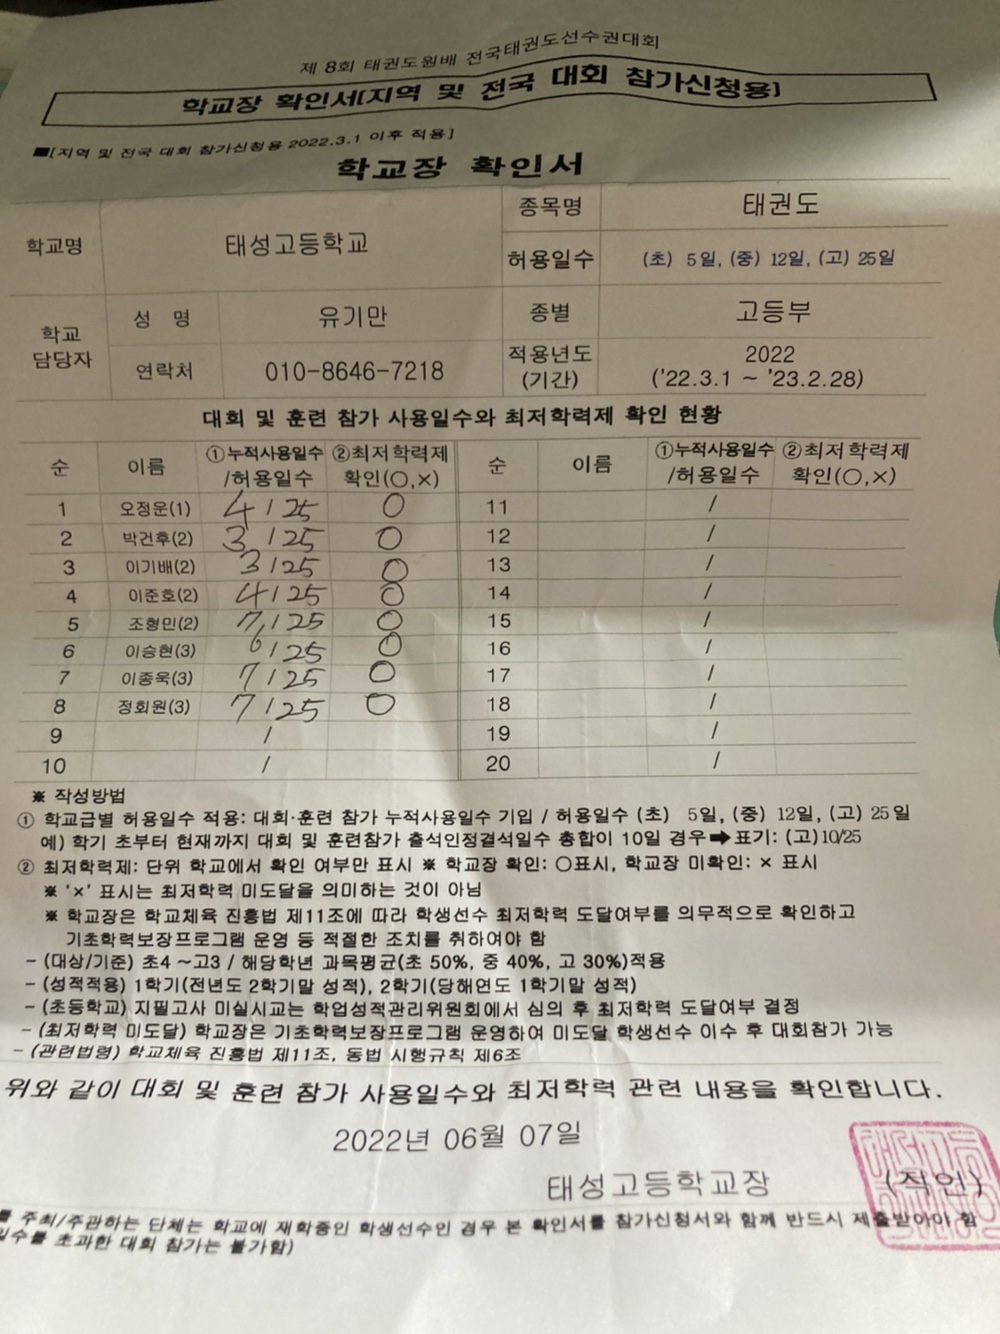 제 8회 태권도원배 전국태권도선수권대회
학교장 확인서(지역 및 전국 대회 참가신청용)
■[지역 및 전국 대회 참가신청용 2022.3.1 이후 적용]
학교장 확인서
학교명 태성고등학교 종목명 태권도
허용일수 (초) 5일, (중) 12일, (고) 25일
학교 담당자 성 명 유기만 종별 고등부
연락처 010-8646-7218 적용년도 (기간) 2022 ('22.3.1 ~ '23.2.28)
대회 및 훈련 참가 사용일수와 최저학력제 확인 현황
순 이름 ①누적사용일수 /허용일수 ②최저학력제 확인(○,×) 순 이름 ①누적사용일수 /허용일수 ②최저학력제 확인(○,×)
1 오정운(1) 4/25 ○ 11 /
2 박건후(2) 3/25 ○ 12 /
3 이기배(2) 3/25 ○ 13 /
4 이준호(2) 4/25 ○ 14 /
5 조형민(2) 7/25 ○ 15 /
6 이승현(3) 6/25 ○ 16 /
7 이종욱(3) 7/25 ○ 17 /
8 정회원(3) 7/25 ○ 18 /
9 / 19 /
10 / 20 /
※ 작성방법
① 학교급별 허용일수 적용: 대회·훈련 참가 누적사용일수 기입 / 허용일수 (초) 5일, (중) 12일, (고) 25일
예) 학기 초부터 현재까지 대회 및 훈련참가 출석인정결석일수 총합이 10일 경우➡표기: (고)10/25
② 최저학력제: 단위 학교에서 확인 여부만 표시 ※ 학교장 확인: ○표시, 학교장 미확인: × 표시
※ '×' 표시는 최저학력 미도달을 의미하는 것이 아님
※ 학교장은 학교체육 진흥법 제11조에 따라 학생선수 최저학력 도달여부를 의무적으로 확인하고
기초학력보장프로그램 운영 등 적절한 조치를 취하여야 함
- (대상/기준) 초4 ~고3 / 해당학년 과목평균(초 50%, 중 40%, 고 30%)적용
- (성적적용) 1학기(전년도 2학기말 성적), 2학기(당해연도 1학기말 성적)
- (초등학교) 지필고사 미실시교는 학업성적관리위원회에서 심의 후 최저학력 도달여부 결정
- (최저학력 미도달) 학교장은 기초학력보장프로그램 운영하여 미도달 학생선수 이수 후 대회참가 가능
- (관련법령) 학교체육 진흥법 제11조, 동법 시행규칙 제6조
위와 같이 대회 및 훈련 참가 사용일수와 최저학력 관련 내용을 확인합니다.
2022년 06월 07일
태성고등학교장 (직인)
를 주최/주관하는 단체는 학교에 재학중인 학생선수인 경우 본 확인서를 참가신청서와 함께 반드시 제출받아야 함
일수를 초과한 대회 참가는 불가함)